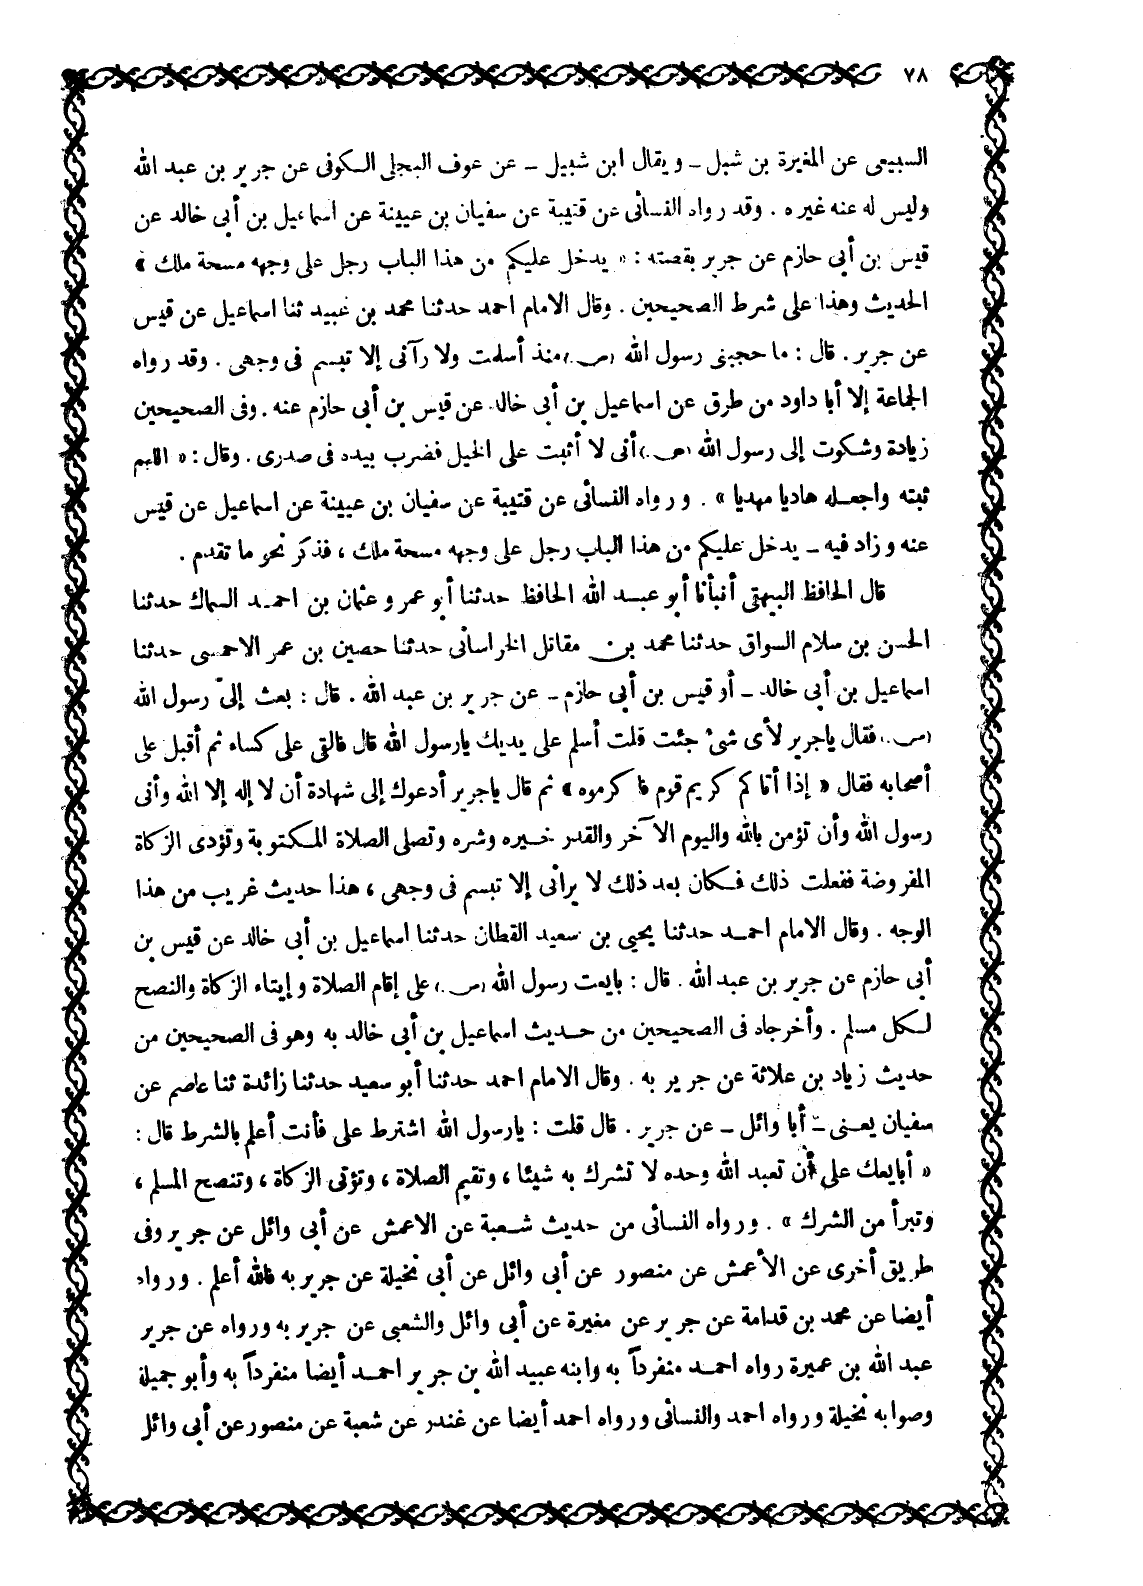 ٧٨
السبيعى عن المغيرة بن شبل ــ ويقال ابن شبيل ــ عن عوف البجلى الكوفى عن جرير بن عبد الله
وليس له عنه غيره . وقد رواه النسائى عن قتيبة عن سفيان بن عيينة عن اسماعيل بن أبى خالد عن
قيس بن أبى حازم عن جرير بقصته : « يدخل عليكم من هذا الباب رجل على وجهه مسحة ملك »
الحديث وهذا على شرط الصحيحين . وقال الامام احمد حدثنا محمد بن عبيد ثنا اسماعيل عن قيس
عن جرير . قال : ما حجبنى رسول الله (ص.) منذ أسلمت ولا رآنى إلا تبسم فى وجهى . وقد رواه
الجماعة إلا أبا داود من طرق عن اسماعيل بن أبى خالد عن قيس بن أبى حازم عنه . وفى الصحيحين
زيادة وشكوت إلى رسول الله (ص.) أنى لا أثبت على الخيل فضرب بيده فى صدرى . وقال : « اللهم
ثبته واجعله هاديا مهديا » . ورواه النسائى عن قتيبة عن سفيان بن عيينة عن اسماعيل عن قيس
عنه وزاد فيه ــ يدخل عليكم من هذا الباب رجل على وجهه مسحة ملك ، فذكر نحو ما تقدم .
قال الحافظ البيهقى أنبأنا أبو عبد الله الحافظ حدثنا أبو عمرو عثمان بن احمد السماك حدثنا
الحسن بن سلام السواق حدثنا محمد بن مقاتل الخراسانى حدثنا حصين بن عمر الاحمسى حدثنا
اسماعيل بن أبى خالد ــ أو قيس بن أبى حازم ــ عن جرير بن عبد الله . قال : بعث إلىّ رسول الله
(ص.) فقال ياجرير لأى شئ جئت قلت أسلم على يديك يارسول الله قال فالقى على كساء ثم أقبل على
أصحابه فقال « إذا أتاكم كريم قوم فاكرموه » ثم قال ياجرير أدعوك إلى شهادة أن لا إله إلا الله وأنى
رسول الله وأن تؤمن بالله واليوم الآخر والقدر خيره وشره وتصلى الصلاة المكتوبة وتؤدى الزكاة
المفروضة ففعلت ذلك فكان بعد ذلك لا يرانى إلا تبسم فى وجهى ، هذا حديث غريب من هذا
الوجه . وقال الامام احمد حدثنا يحيى بن سعيد القطان حدثنا اسماعيل بن أبى خالد عن قيس بن
أبى حازم عن جرير بن عبد الله . قال : بايعت رسول الله (ص.) على إقام الصلاة وإيتاء الزكاة والنصح
لكل مسلم . وأخرجاه فى الصحيحين من حديث اسماعيل بن أبى خالد به وهو فى الصحيحين من
حديث زياد بن علاثة عن جرير به . وقال الامام احمد حدثنا أبو سعيد حدثنا زائدة ثنا عاصم عن
سفيان يعنى ــ أبا وائل ــ عن جرير . قال قلت : يارسول الله اشترط على فأنت أعلم بالشرط قال :
« أبايعك على أن تعبد الله وحده لا تشرك به شيئا ، وتقيم الصلاة ، وتؤتى الزكاة ، وتنصح المسلم ،
وتبرأ من الشرك » . ورواه النسائى من حديث شعبة عن الاعمش عن أبى وائل عن جرير وفى
طريق أخرى عن الأعمش عن منصور عن أبى وائل عن أبى نخيلة عن جرير به فالله أعلم . ورواه
أيضا عن محمد بن قدامة عن جرير عن مغيرة عن أبى وائل والشعبى عن جرير به ورواه عن جرير
عبد الله بن عميرة رواه احمد منفرداً به وابنه عبيد الله بن جرير احمد أيضا منفرداً به وأبو جميلة
وصوابه نخيلة ورواه احمد والنسائى ورواه احمد أيضا عن غندر عن شعبة عن منصور عن أبى وائل